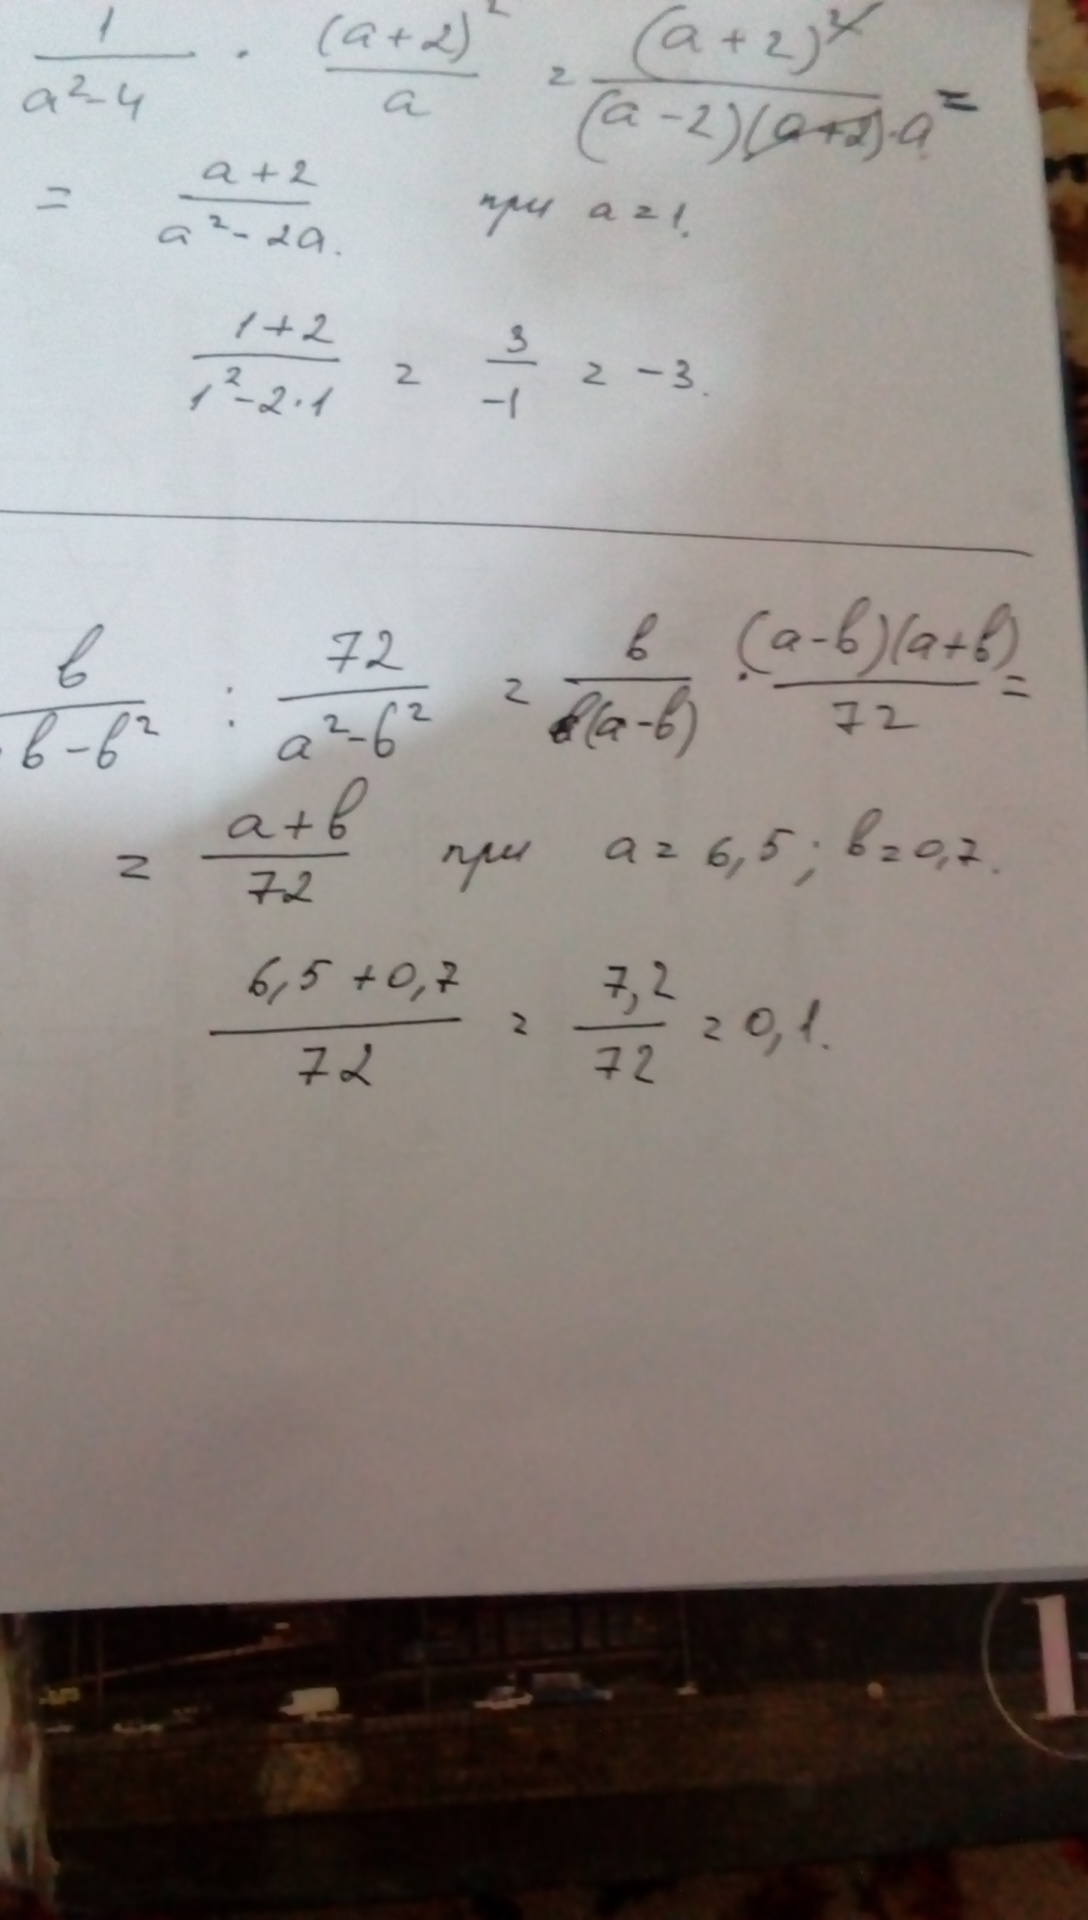 1/(a²-4) · (a+2)²/a = (a+2)²/((a-2)(a+2)·a) =
= (a+2)/(a²-2a). при a=1.
(1+2)/(1²-2·1) = 3/-1 = -3.
b/(b-b²) : 72/(a²-b²) = b/(b(a-b)) · (a-b)(a+b)/72 =
= (a+b)/72 при a=6,5; b=0,7.
(6,5+0,7)/72 = 7,2/72 = 0,1.